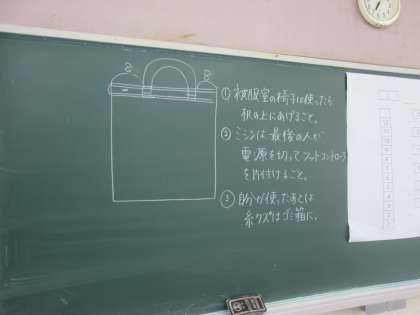 ① 被服室の椅子は使ったら
机の上にあげること。
② ミシンは最後の人が
電源を切ってフットコントローラ
を片付けること。
③ 自分が使ったあとは
糸クズはゴミ箱に。